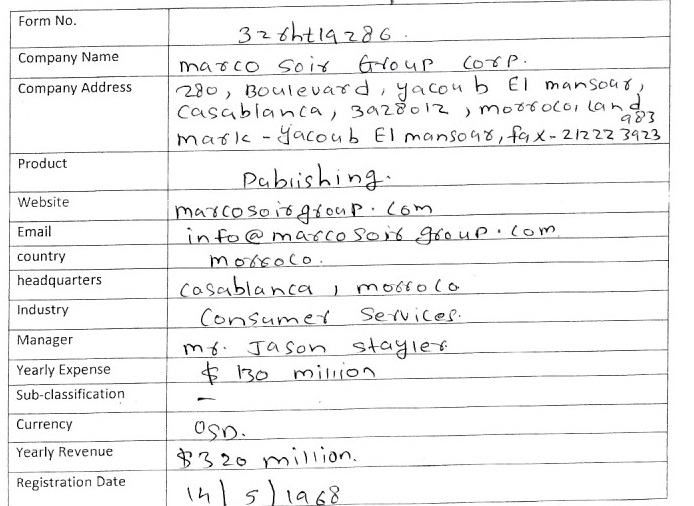 Form No. 32rht19286.
Company Name marco Soir Group Corp.
Company Address 280, Boulevard, yacoub El mansour,
Casablanca, 3928012, morroco, land
mark - yacoub El mansour, fax - 212223923
983
Product Publishing.
Website marcosoirgroup.com
Email info@marcosoirgroup.com
country morroco.
headquarters Casablanca, morroco
Industry Consumer Services.
Manager mr. Jason stayler
Yearly Expense $ 130 million
Sub-classification –
Currency USD.
Yearly Revenue $320 million.
Registration Date 14/5/1968